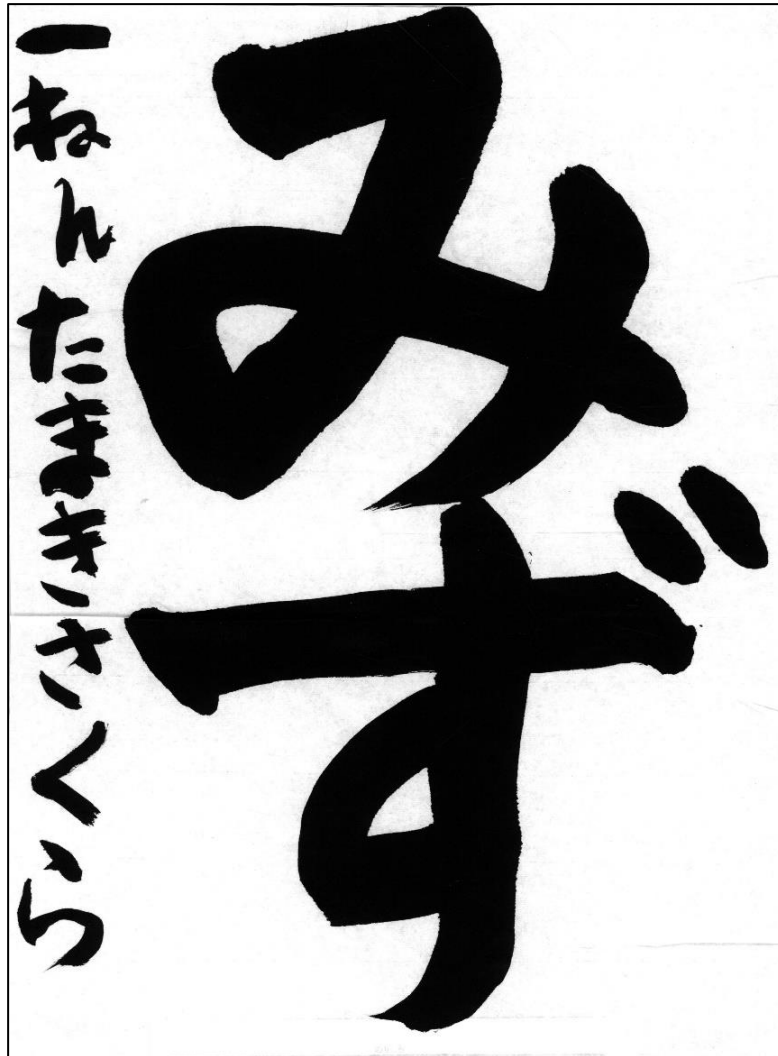 みず
一ねんたまきさくら